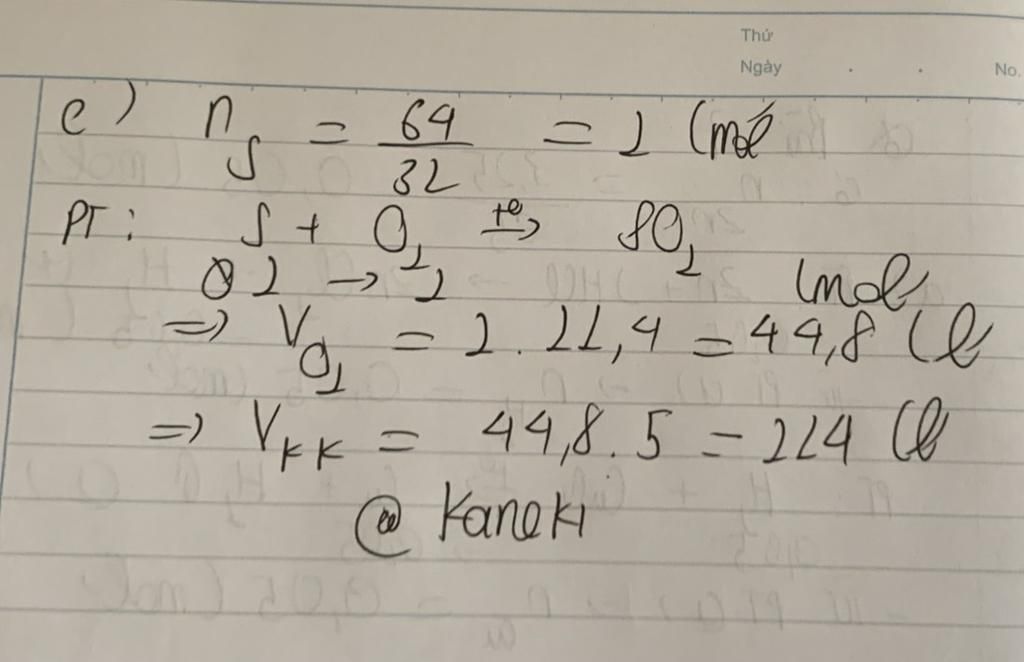 Thứ
Ngày . . No.
c) n_S = 64/32 = 2 (mol
PT: S + O₂ t°→ SO₂
2 → 2 (mol
=> V_O₂ = 2 . 22,4 = 44,8 (l
=> V_KK = 44,8 . 5 = 224 (l
@ Kaneki